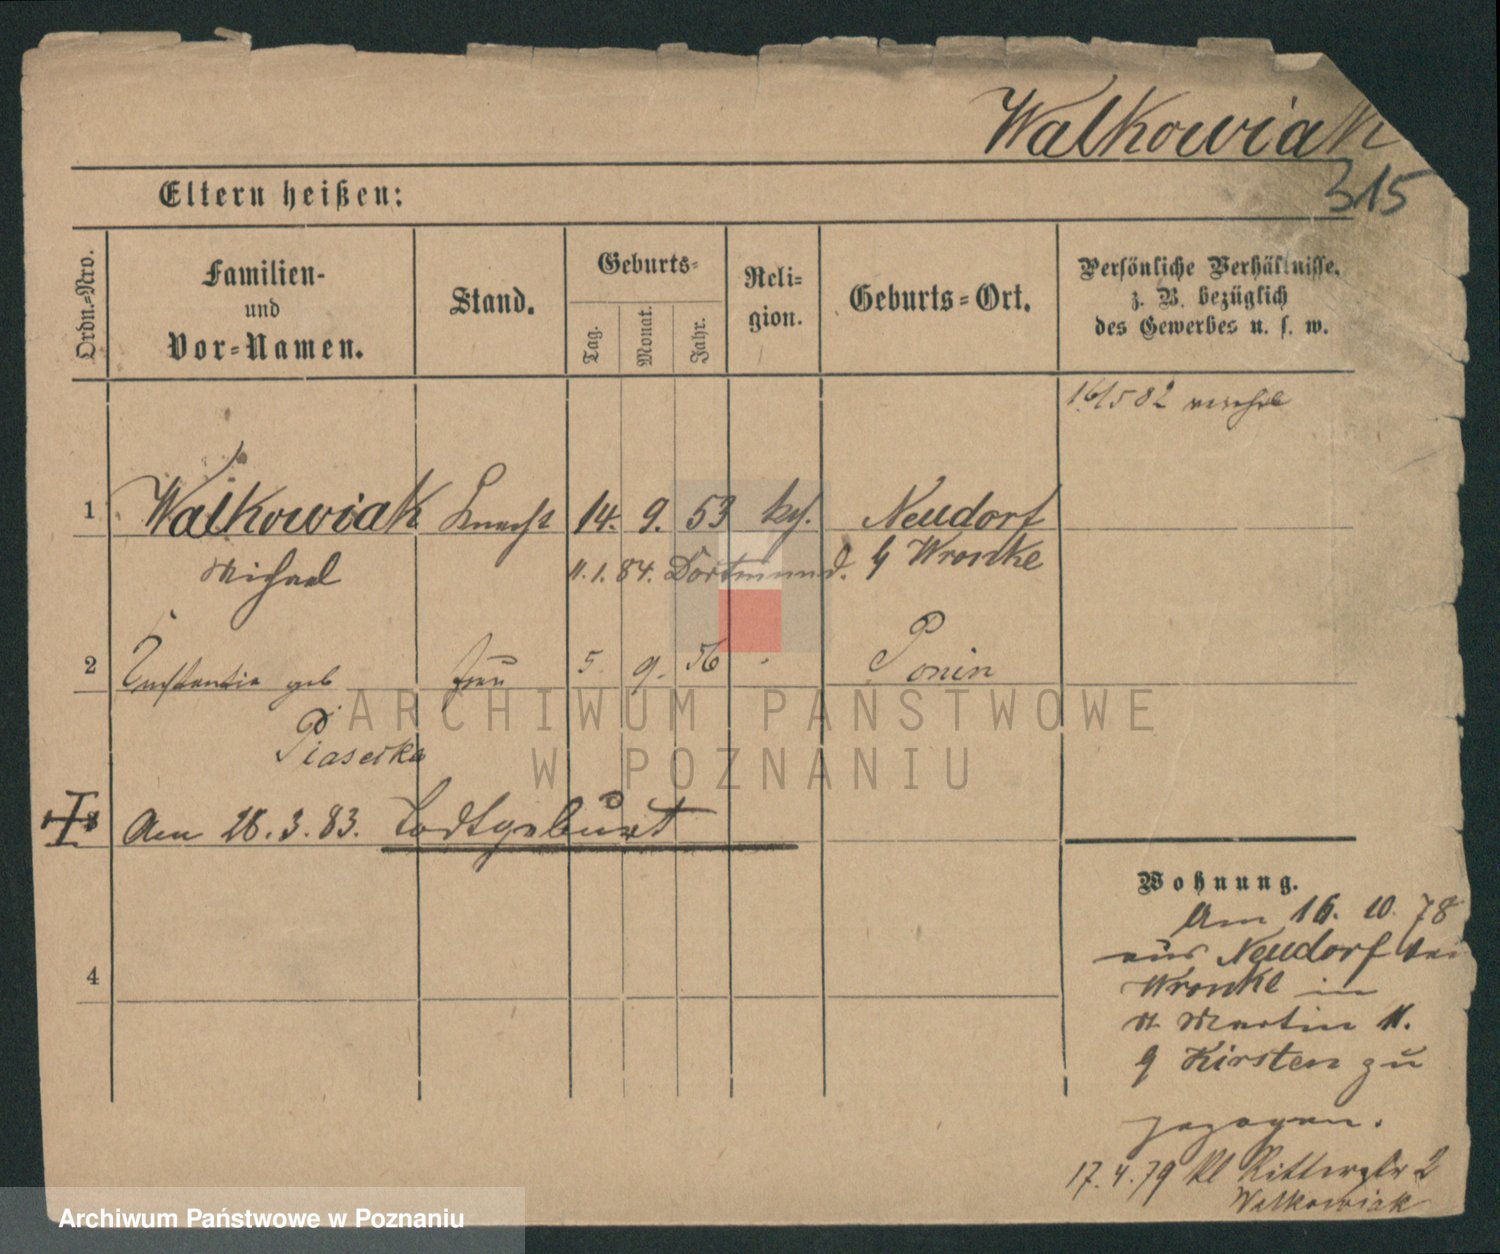 Walkowiak
315
Eltern heißen:
Ordn.-Nro.
Familien-
und
Vor-Namen.
Stand.
Geburts-
Tag.
Monat.
Jahr.
Reli-
gion.
Geburts-Ort.
Persönliche Verhältnisse,
z. B. bezüglich
des Gewerbes u. s. w.
16/5 82
1 Walkowiak Knecht 14. 9. 53 kth. Neudorf
Michael 11.1.84. Dortmund. Wronke
2 Constantia geb Frau 5. 9. 56 Ponin
Piasecka
Am 28.3.83. Todtgeburt
4
Wohnung.
Am 16. 10. 78
aus Neudorf bei
Wronke in
St Martin 11.
Kirsten zu
gezogen.
17.4.79 Kl Ritterstr 2
Walkowiak
ARCHIWUM PAŃSTWOWE
W POZNANIU
Archiwum Państwowe w Poznaniu